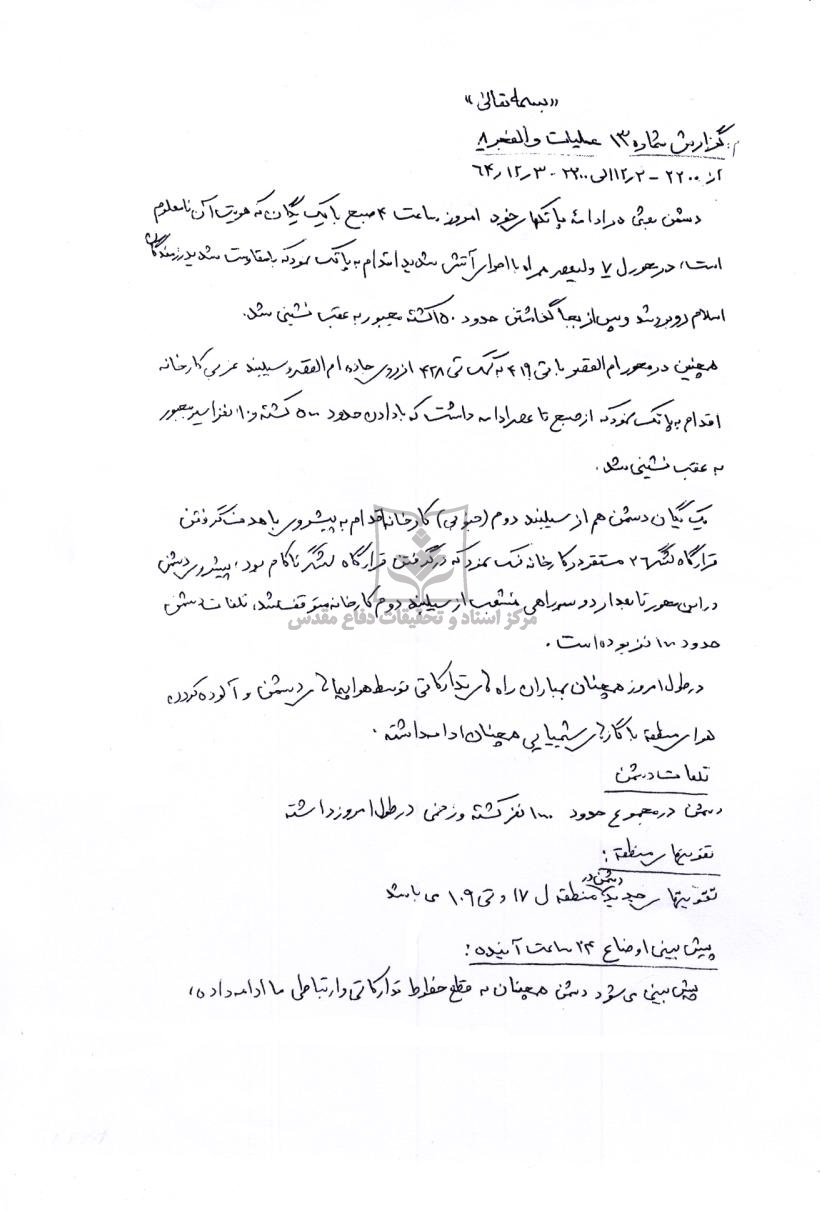 «بسمه تعالی»
م: گزارش شماره ۱۳ عملیات والفجر ۸
از ۲۲۰۰ - ۲ر۱۲ الی ۲۲۰۰ - ۳ر۱۲ر۶۴
دشمن بعثی در ادامهٔ پاتکهای خود امروز ساعت ۴ صبع با یک یگان که هویت آن نامعلوم
است، در محور ل ۷ ولیعصر همراه با اجرای آتش شدید اقدام به پاتک نمود که با مقاومت شدید رزمندگان
اسلام روبرو شد و پس از بجا گذاشتن حدود ۱۵۰ کشته مجبور به عقب نشینی شد.
همچنین در محور ام القصر با تی ۴۱۹ به کمک تی ۴۲۸ از روی جاده ام القصر و سیلبند غربی کارخانه
اقدام به پاتک نمود که از صبح تا عصر ادامه داشت که با دادن حدود ۵۰۰ کشته و ۱۰ نفر اسیر مجبور
به عقب نشینی شد.
یک یگان دشمن هم از سیلبند دوم (جنوبی) کارخانه اقدام به پیشروی با هدف گرفتن
قرارگاه لشگر ۲۶ مستقر در کارخانه نمک نمود که در گرفتن قرارگاه لشگر ناکام بود، پیشروی دشمن
در این محور تا بعد از دو سه راهی منشعب از سیلبند دوم کارخانه متوقف شد، تلفات دشمن
حدود ۱۰۰ نفر بوده است.
در طول امروز همچنان بمباران راه های تدارکاتی توسط هواپیماهای دشمن و آلوده کردن
هوای منطقه با گازهای شیمیایی همچنان ادامه داشته.
تلفات دشمن
دشمن در مجموع حدود ۱۰۰۰ نفر کشته و زخمی در طول امروز داشته
تقویتهای منطقه:
تقویتهای جدید دشمن در منطقه ل ۱۷ و تی ۱۰۹ می باشد
پیش بینی اوضاع ۲۴ ساعت آینده:
پیش بینی می شود دشمن همچنان به قطع خطوط تدارکاتی و ارتباطی ما ادامه داده،
مرکز اسناد و تحقیقات دفاع مقدس